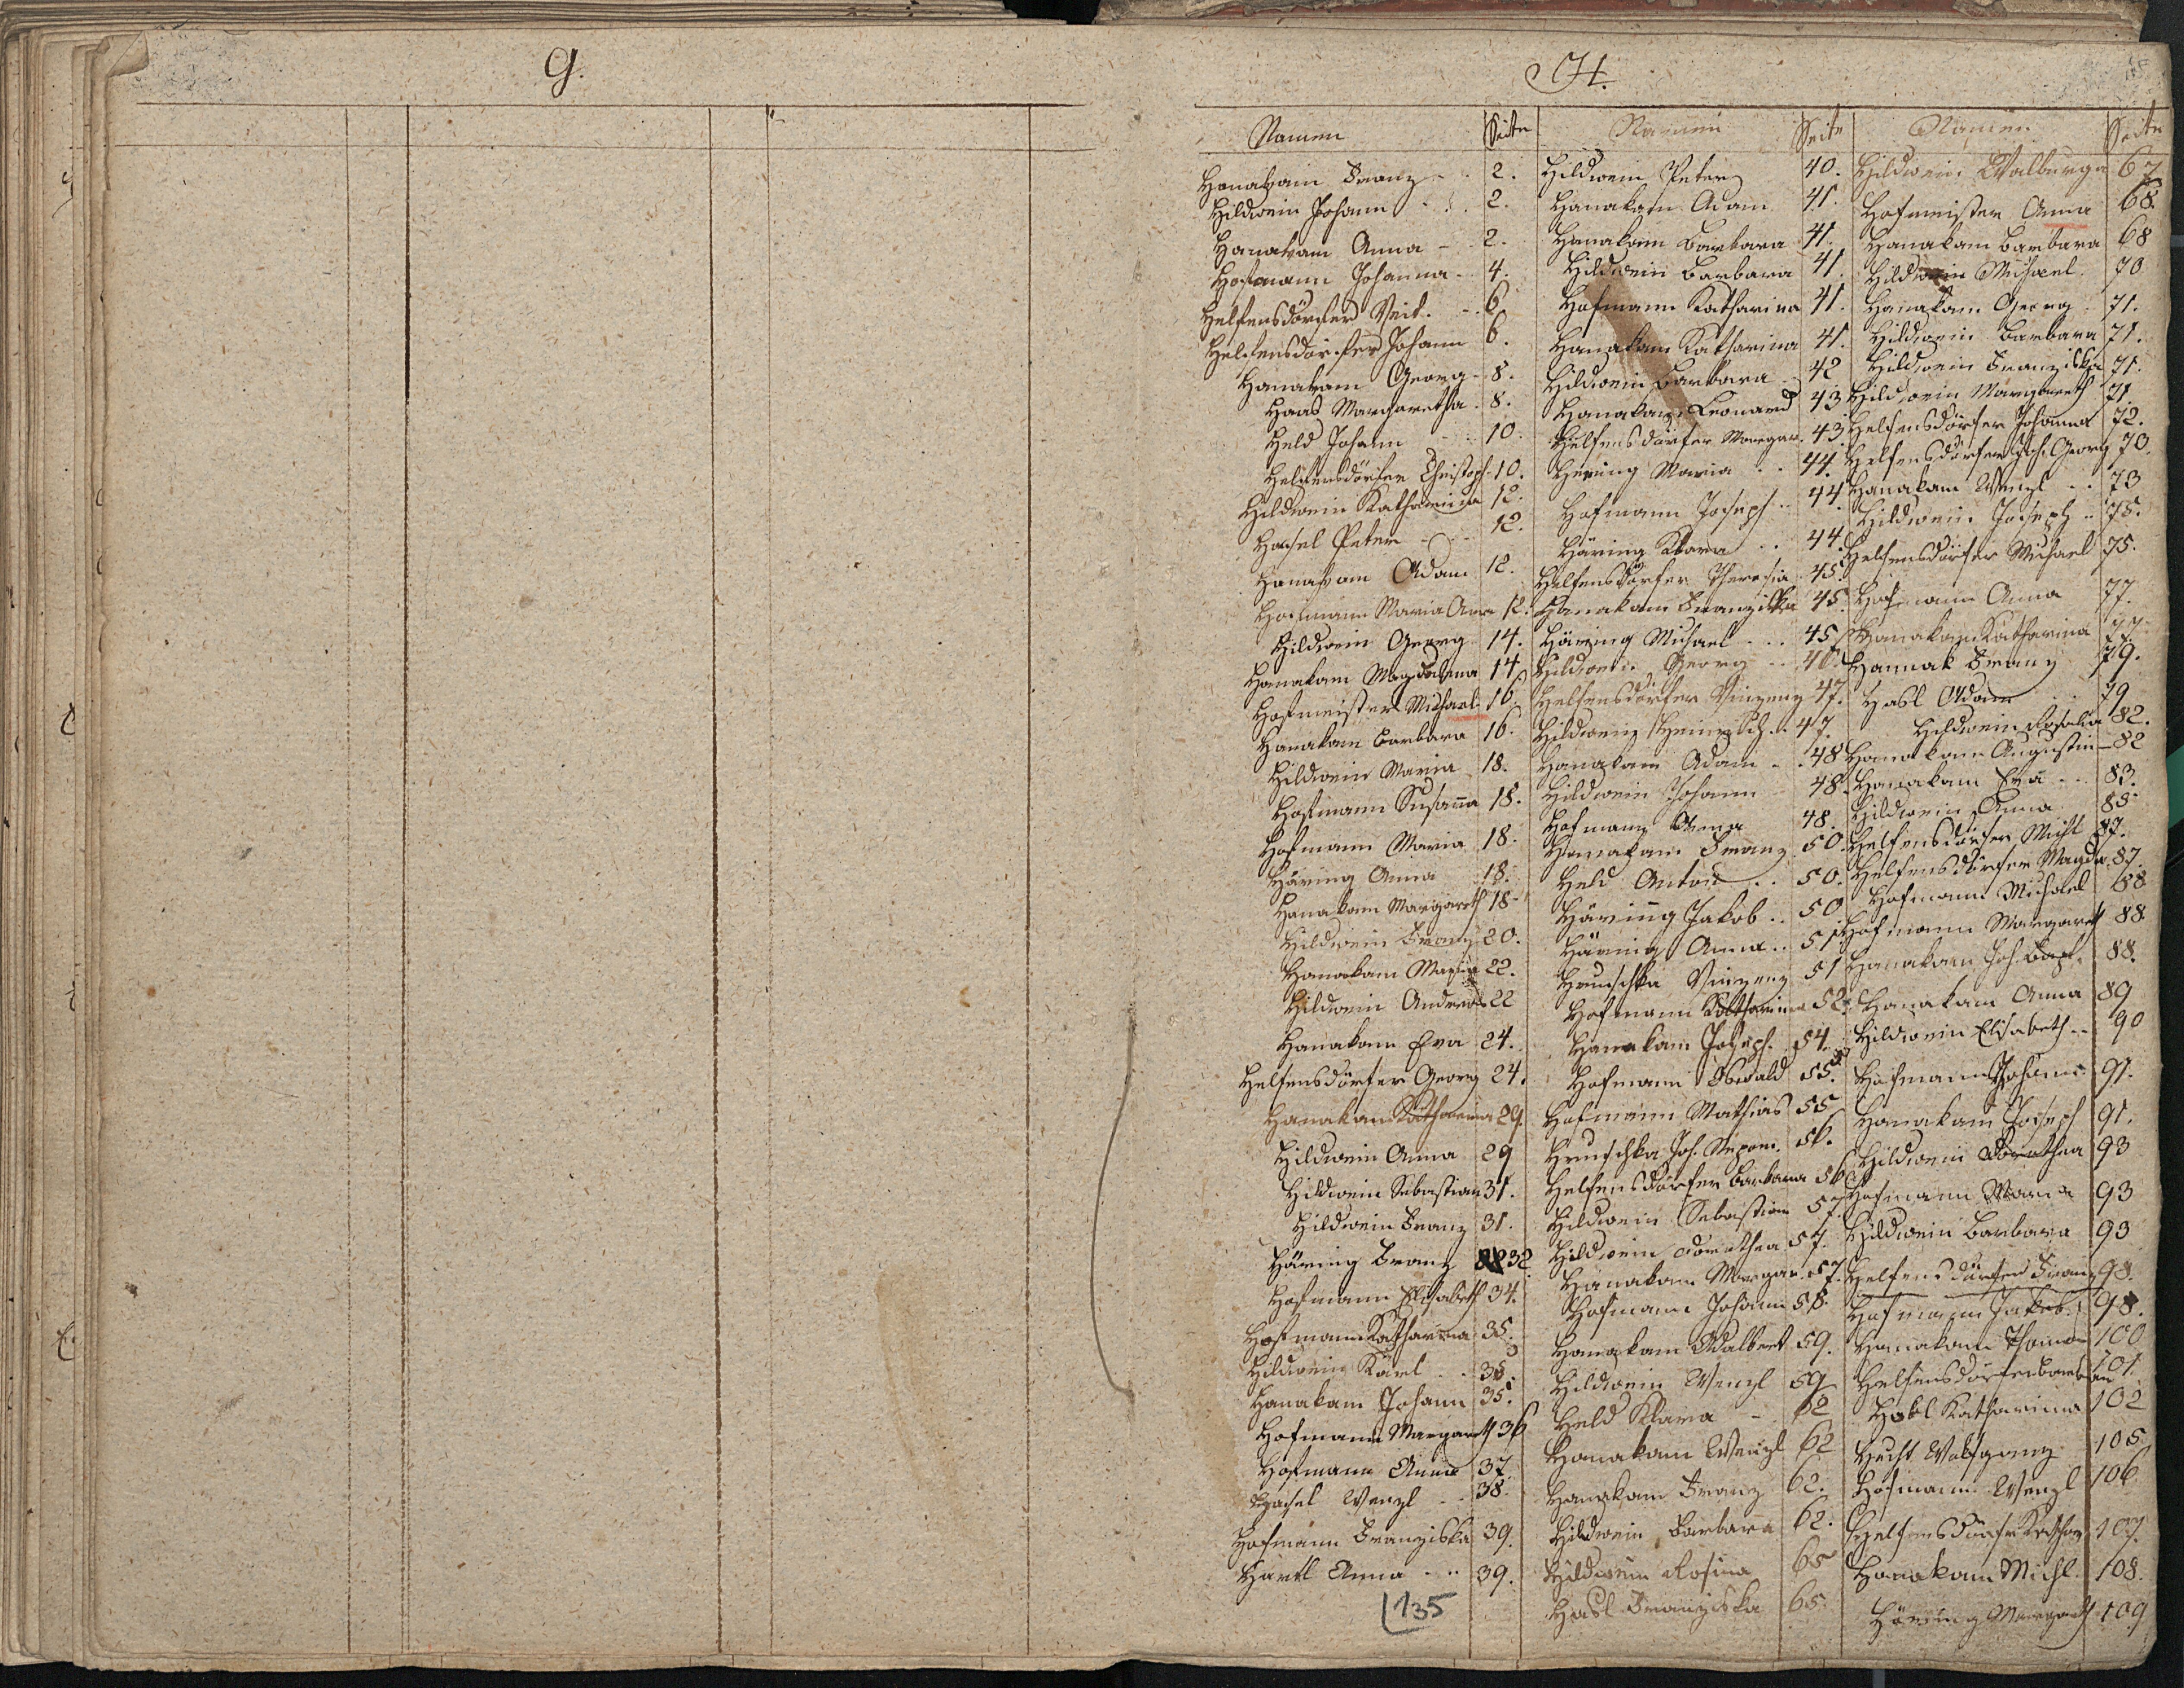 G.
H.
Namen Seite
Hanakam Franz 2.
Hildwein Johann 2.
Hanakam Anna - 2.
Hofmann Johanna - 4.
Helfensdörfer Veit. 6.
Helfensdörfer Johann 6.
Hanakam Georg - 8.
Haas Margaretha. 8.
Held Johann 10.
Helfensdörfer Christoph. 10.
Hildwein Katharina 12.
Hasel Peter 12.
Hanakam Adam 12.
Hofmann Maria Anna 12.
Hildwein Georg 14.
Hanakam Magdalena 14
Hofmeister Michael 16.
Hanakam Barbara 16.
Hildwein Maria 18.
Hofmann Susaña 18.
Hofmann Maria 18.
Häring Anna 18.
Hanakam Margareth 18
Hildwein Franz 20.
Hanakam Maria 22.
Hildwein Andreas 22
Hanakam Eva 24.
Helfensdörfer Georg 24.
Hanakam Katharina 29.
Hildwein Anna 29
Hildwein Sebastian 31.
Hildwein Franz 31.
Häring Franz 32.
Hofmann Elisabeth 34.
Hofmann Katharina 35.
Hildwein Karl 35.
Hanakam Johann 35.
Hofmann Margareth 36
Hofmann Anna 37.
Hasel Wenzl 38.
Hofmann Franziska 39.
Hartl Anna 39.
135
Namen Seite
Hildwein Peter 40.
Hanakam Adam 41.
Hanakam Barbara 41.
Hildwein Barbara 41.
Hofmann Katharina 41.
Hanakam Katharina 41.
Hildwein Barbara 42
Hanakam Leonard 43
Helfensdörfer Margar. 43.
Hering Maria 44.
Hofmann Joseph 44.
Häring Klara 44.
Helfensdörfer Theresia 45.
Hanakam Franziska 45.
Häring Michael 45
Hildwein Georg 46.
Helfensdörfer Vinzenz 47.
Hildwein Heinrich 47.
Hanakam Adam 48
Hildwein Johann 48.
Hofmann Anna 48.
Hanakam Franz 50.
Held Anton 50.
Häring Jakob 50.
Häring Anna 51.
Hruschka Vinzenz 51
Hofmann Katharina 52.
Hanakam Joseph. 54.
Hofmann Oswald 55.
Hofmann Mathias 55
Hruschka Joh. Nepom. 56.
Helfensdörfer Barbara 56
Hildwein Sebastian 57.
Hildwein Dorothea 57.
Hanakam Margar. 57.
Hofmann Johann 58.
Hanakam Adalbert 59.
Hildwein Wenzl 59
Held Klara - 62
Hanakam Wenzl 62
Hanakam Franz 62.
Hildwein Barbara 62.
Hildwein Rosina 65
Hasl Franziska 65.
Namen Seite
Hildwein Walburga 67
Hofmeister Anna 68.
Hanakam Barbara 68
Hildwein Michael. 70
Hanakam Georg 71.
Hildwein Barbara 71.
Hildwein Franziska 71.
Hildwein Margareth 71.
Helfensdörfer Johanna 72.
Helfensdörfer Joh. Georg 70.
Hanakam Wenzl 73
Hildwein Joseph 75.
Helfensdörfer Michael 75.
Hofmann Anna 77.
Hanakam Katharina 77.
Hannak Franz 79.
Hasl Adam 79
Hildwein Rosalia 82.
Hanakam Augustin - 82
Hanakam Eva 83.
Hildwein Anna 85
Helfensdörfer Michl 87.
Helfensdörfer Magda. 87.
Hofmann Michael 88
Hofmann Margareth 88.
Hanakam Joh. Bapt. 88.
Hanakam Anna 89
Hildwein Elisabeth 90
Hofmann Johann 91.
Hanakam Joseph 91.
Hildwein Dorothea 93
Hofmann Maria 93
Hildwein Barbara 93
Helfensdörfer Franz 98.
Hofmann Jakob. 98.
Hanakam Thomas 100
Helfensdörfer Barbara 101.
Katharina 102
Hecht Wolfgang 105.
Hofmann Wenzl 106.
Helfensdörfer Kathar 107.
Hanakam Michl. 108.
Häring Margareth 109